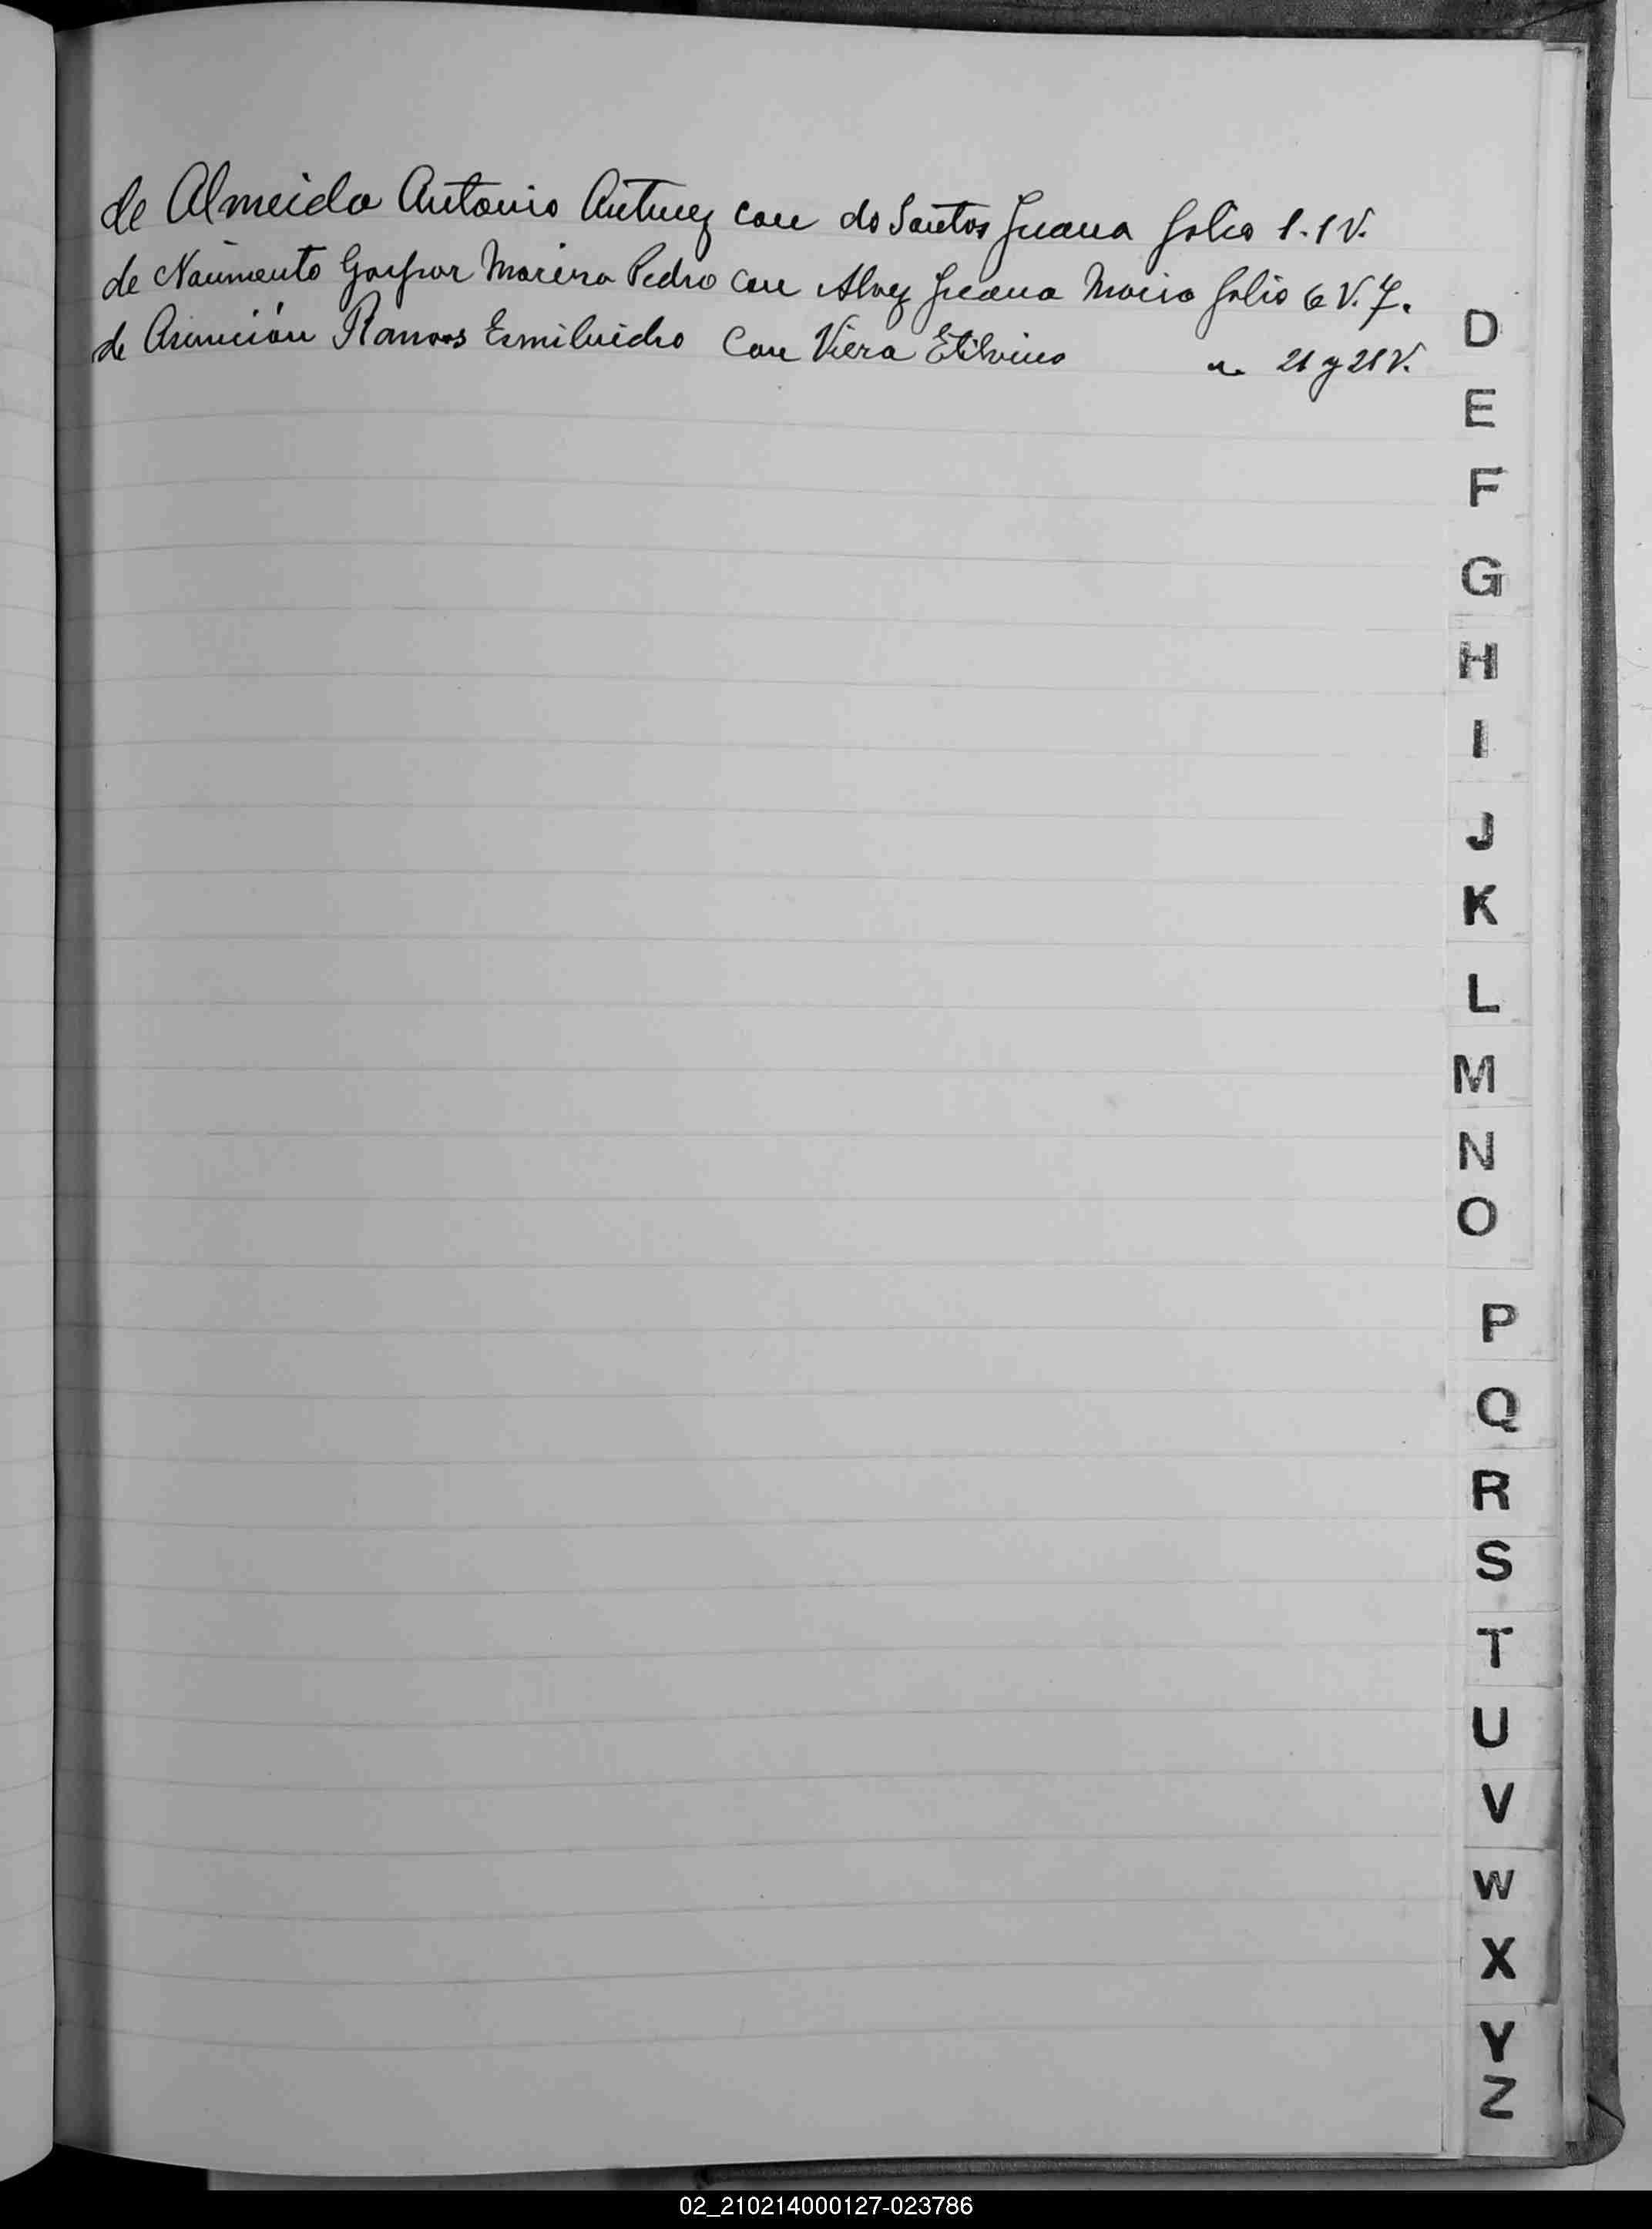 de Almeida Antonio Antunez con do Santos Juana folio 1.1V.
de Nacimento Gaspar Moreira Pedro con Alvez Juana Maria folio 6V.7.
de Asunción Ramos con Viera Etilvino " 21 y 21V.
D
E
F
G
H
I
J
K
L
M
N
O
P
Q
R
S
T
U
V
W
X
Y
Z
02_210214000127-023786